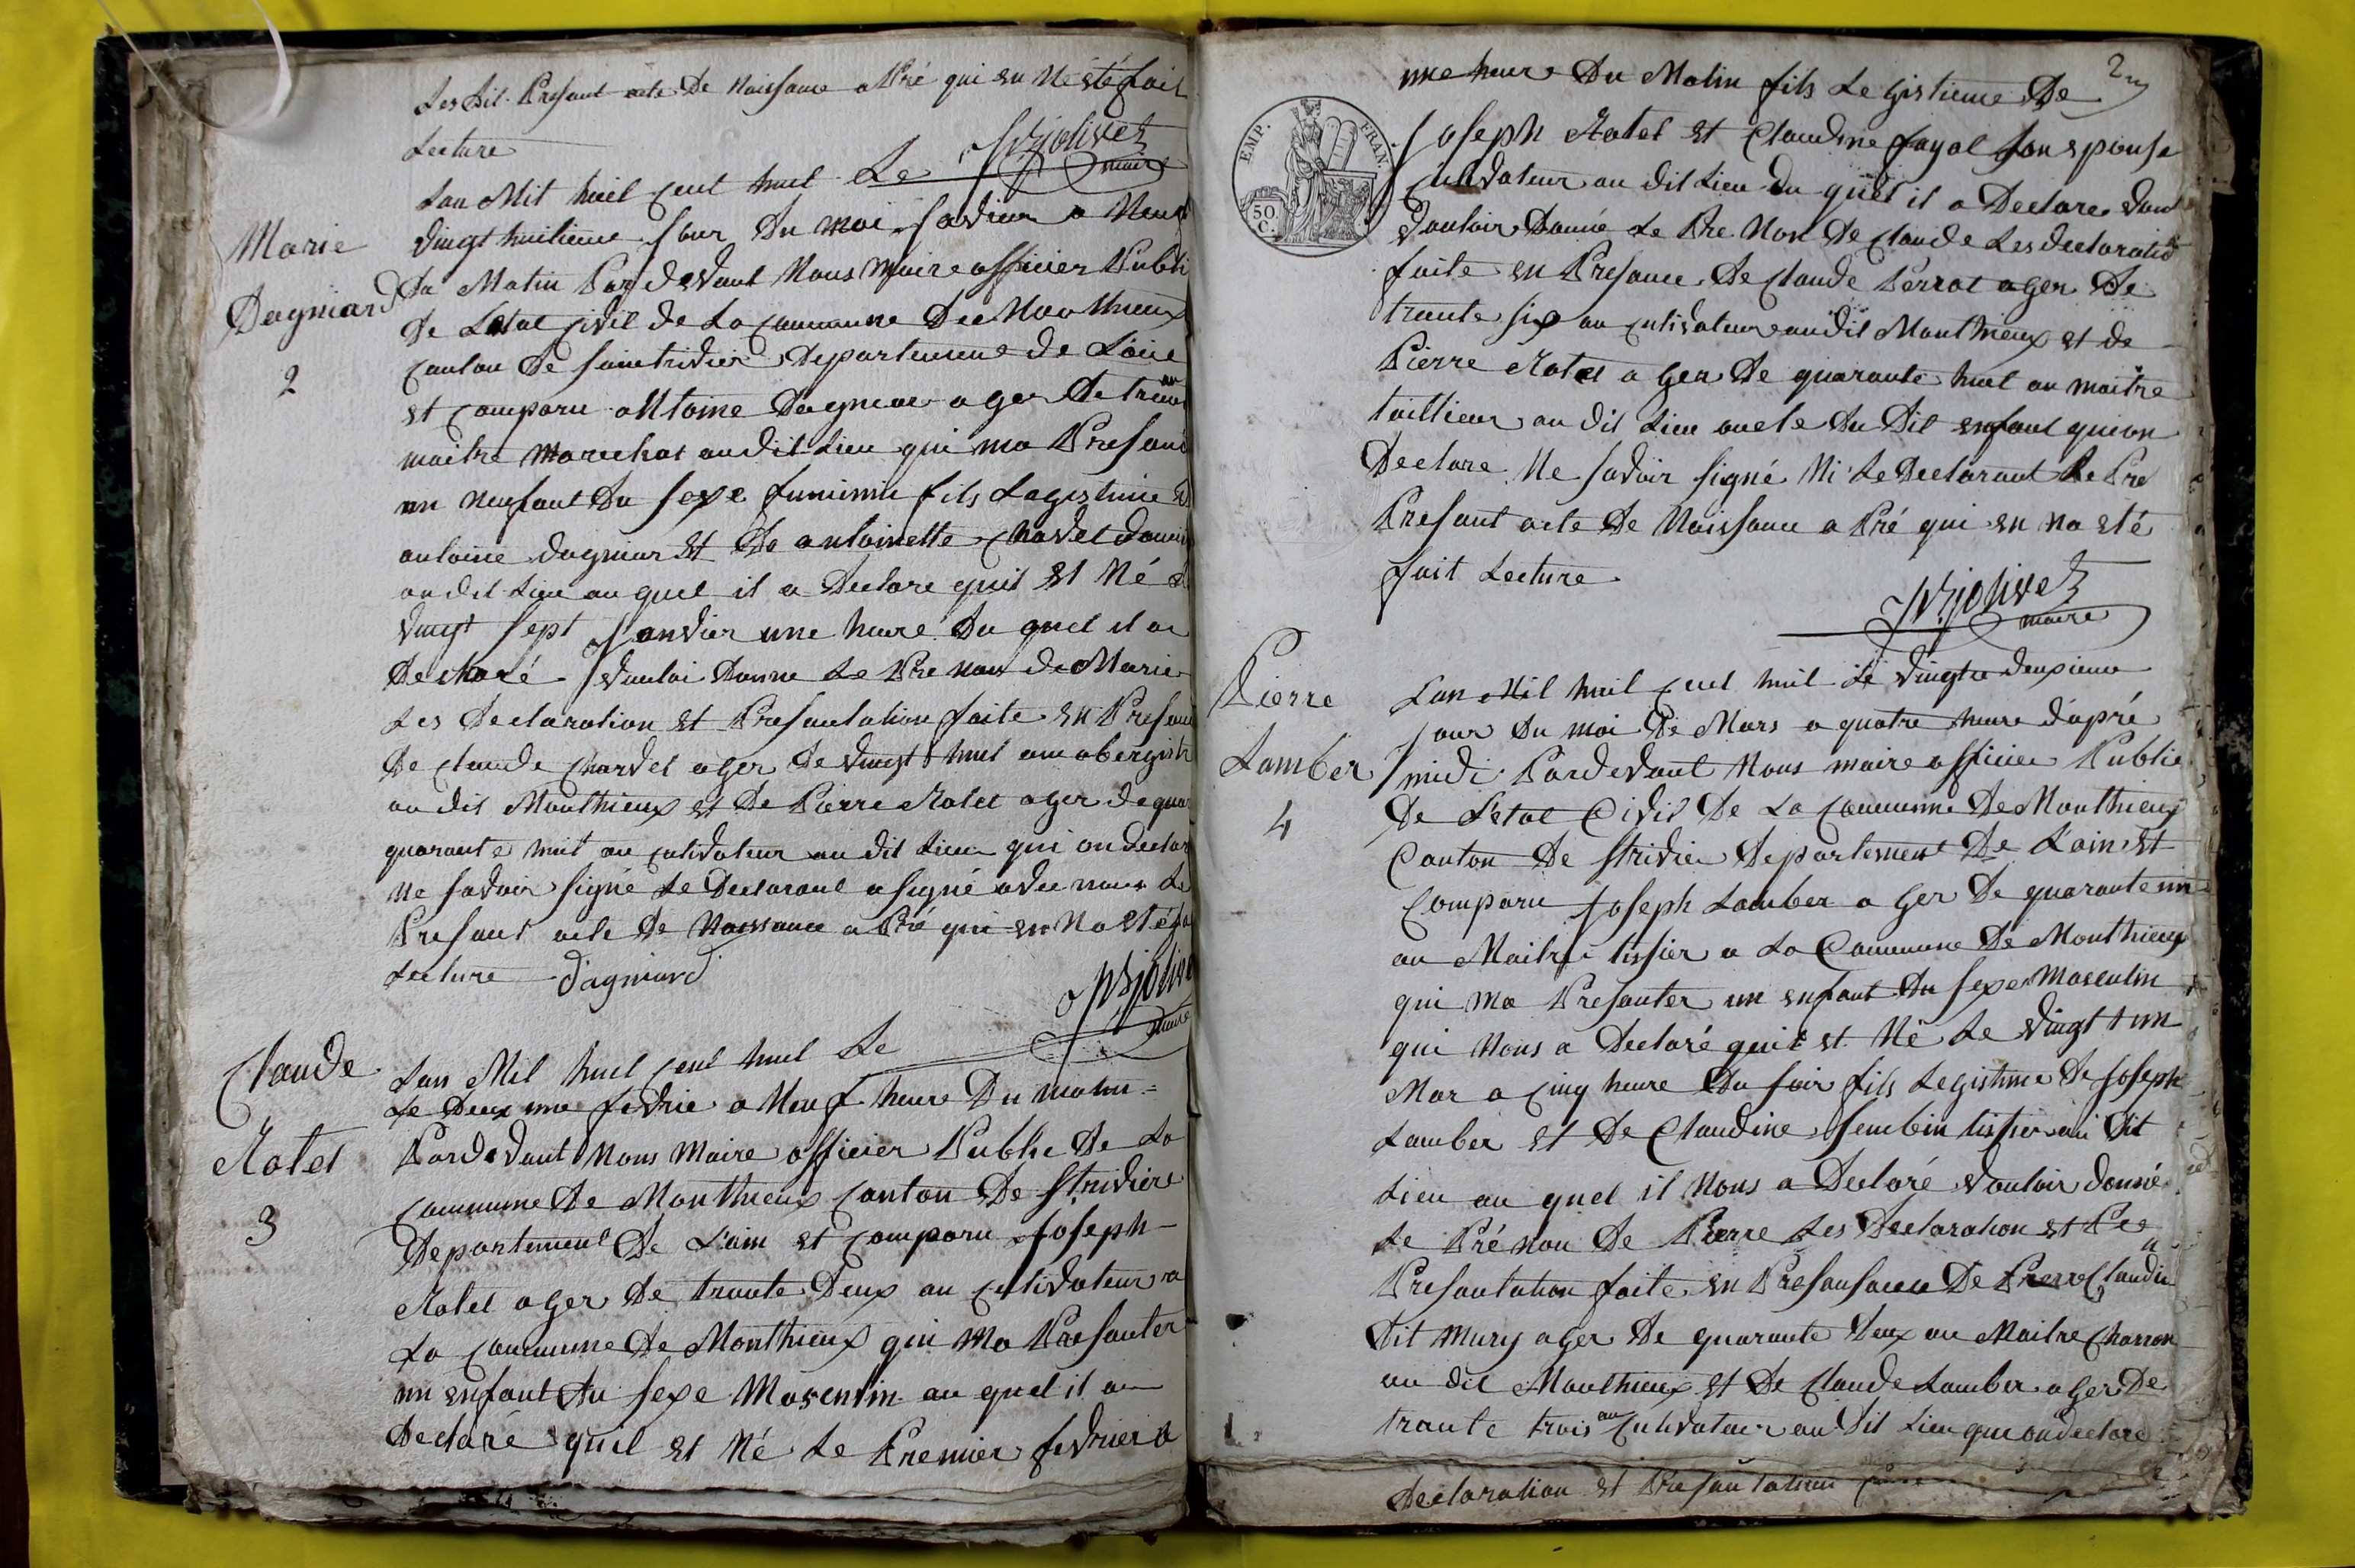 Les dit Presant acte De Naissance a Pré qui en N esté fait
Lecture
JPrjolivet
maire
Lan Mil huil cent huil Le
Marie
Dagniard
2
vingt huitieme Jour Du moi Janvier a Neuf
Du Matin Pardevant Nous Maire officier Publi
De Letat Civil de La Commune De Monthieux
Canton De Saintrivier Departement de L'ain
et comparu antoine Dagniar ager De trente
maitre marechal audit Lieu qui ma Presant
un Nenfant Du sexe fuminin fils Legistime D
antoine dagniar et De antoinette Charvet
au dit Lieu au quel il a Declare quil et Né
vingt sept Janvier une heure Du quel il a
Declaré vouloi Donne Le Pre nom de Marie
Les Declaration et Presantation faite en Presan
De claude Charvet ager De vingt huit an abergist
au dit Monthieux et De Pierre Rolet ager de qua
quarante huit an cultivateur au dit Lieu qui on declar
Ne savoir signé Le Declarant a signé avec nous Le
Presant acte De Naissance a Pré qui en Na esté fa
Lecture Dagniard
JPrjolive
maire
Claude
Rolet
3
Lan Mil huil cent huil Le
Le Deuxime fevrie a Neuf heure Du matin =
Pardevant Nous Maire officier Public De La
Commune De Monthieux Canton De Strivière
Departement De L'ain et comparu Joseph
Rolet ager De trante Deux an cultivateur a
La Commune De Monthieux qui Ma Presanter
un enfant Du sexe Masculin au quel il a
Declaré quil et Né Le Premier fevrier a
2
EMP. FRAN.
50
C.
une heure Du Matin fils Legistieme De
Joseph Rolet et Claudine fayol son epouse
Cultivateur au dit Lieu Du quel il a Declare
vouloir Donné Le Pre Non De Claude Les declaratio
faite en Presance De Claude Perrat ager De
trante six an cultivateur audit Monthieux et de
Pierre Rolet ager De quarante huit an maitre
taillieur au dit Lieu oncle Du Dit enfant qui on
Declare Ne savoir signé Ni Le Declarant Le Pre
Presant acte De Naissance a Pré qui en na esté
fait Lecture
JPrjolivet
maire
Pierre
Lamber
4
L'an Mil huil cent huil Le vingte deuxieme
Jour Du moi De Mars a quatre heure d'apré
midi Pardevant Nous maire officier Public
De L'etat Civil De La Commune De Monthieux
Canton De Strivier Departement De Lain Et
Comparu Joseph Lamber ager De quarante un
an Maitre tissier a La Commune De Monthieux
qui Ma Presanter un enfant Du sexe Masculin
qui Nous a Declaré quil et Né Le vingt un
Mar a cinq heure Du soir fils Legistime De Joseph
Lamber et De Claudine tissier au Dit
Lieu au quel il Nous a Declaré vouloir donné
Le Pré nom De Pierre Les Declaration et Pre
Presantation faite en Presansance De Pierre Claudi
Dit Mury ager De quarante Deux an Maitre Charron
au dit Monthieux et De Claude Lamber ager De
trante trois an Cultivateur au Dit Lieu qui on declare
Declaration et Presantation